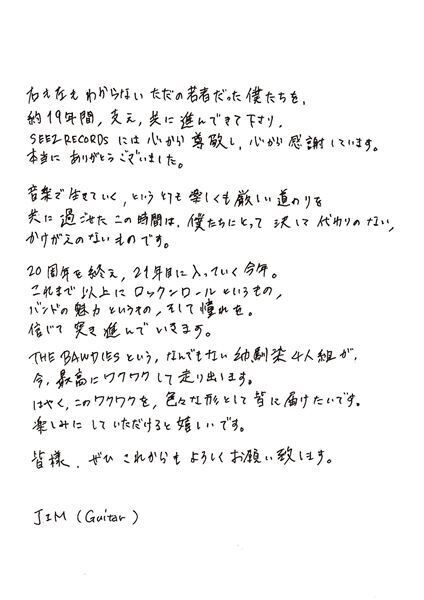 右も左もわからない ただの若者だった僕たちを、
約19年間、支え、共に進んできて下さり、
SEEZ RECORDS には 心から 尊敬し、心から 感謝しています。
本当に ありがとうございました。
音楽で 生きていく、という とても 楽しくも 厳しい 道のりを
共に 過ごせた この時間は、僕たちにとって 決して 代わりのない、
かけがえのないものです。
20周年を終え、21年目に入っていく 今年。
これまで以上に ロックンロールというもの、
バンドの魅力というもの、そして憧れを。
信じて 突き進んでいきます。
THE BAWDIES という、なんでもない 幼馴染 4人組が、
今、最高に ワクワクして 走り出します。
はやく、このワクワクを、色々な形として 皆に 届けたいです。
楽しみに していただけると 嬉しいです。
皆様、ぜひ これからも よろしく お願い致します。
JIM (Guitar)